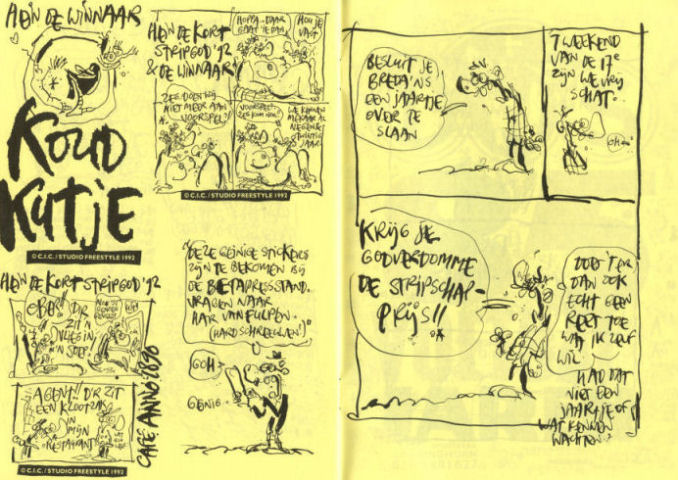 HEIN DE WINNAAR
KOUD
KUTJE
© C.I.C. / STUDIO FREESTYLE 1992
HEIN DE KORT
STRIPGOD '92
& DE WINNAAR
HOPPA, DAAR
GAAT IE DAN
HOU JE
VAST
NIET MEER AAN
VOORSPEL?
VOORSPEL?
WE KENNEN
MEKAAR AL
JAAR
© C.I.C. / STUDIO FREESTYLE 1992
HEIN DE KORT STRIPGOD '92
OBER! D'R
ZIT 'N
VLIEG IN
'N SOEP
AGENT!! D'R ZIT
EEN KLOOTZAK
IN
MIJN
RESTAURANT
CAFÉ ANNO 1890
© C.I.C. / STUDIO FREESTYLE 1992
DEZE GEINIGE STICKERS
ZIJN TE BEKOMEN BIJ
DE BETAPRESSSTAND.
VRAGEN NAAR
HAR VAN FULPEN.
(HARD SCHREEUWEN!)
GOH
GEINIG.
BESLUIT JE
BREDA'NS
EEN JAARTJE
OVER TE
SLAAN
'T WEEKEND
VAN DE 17e
ZIJN WE VRIJ
SCHAT.
OH
KRIJG JE
GODVERDOMME
DE STRIPSCHAP-
PRIJS!!
DOET 'T ER
DAN OOK
ECHT GEEN
REET TOE
WAT IK ZELF
WIL
HAD DAT
NIET EEN
JAARTJE OF
WAT KENNEN
WACHTEN?